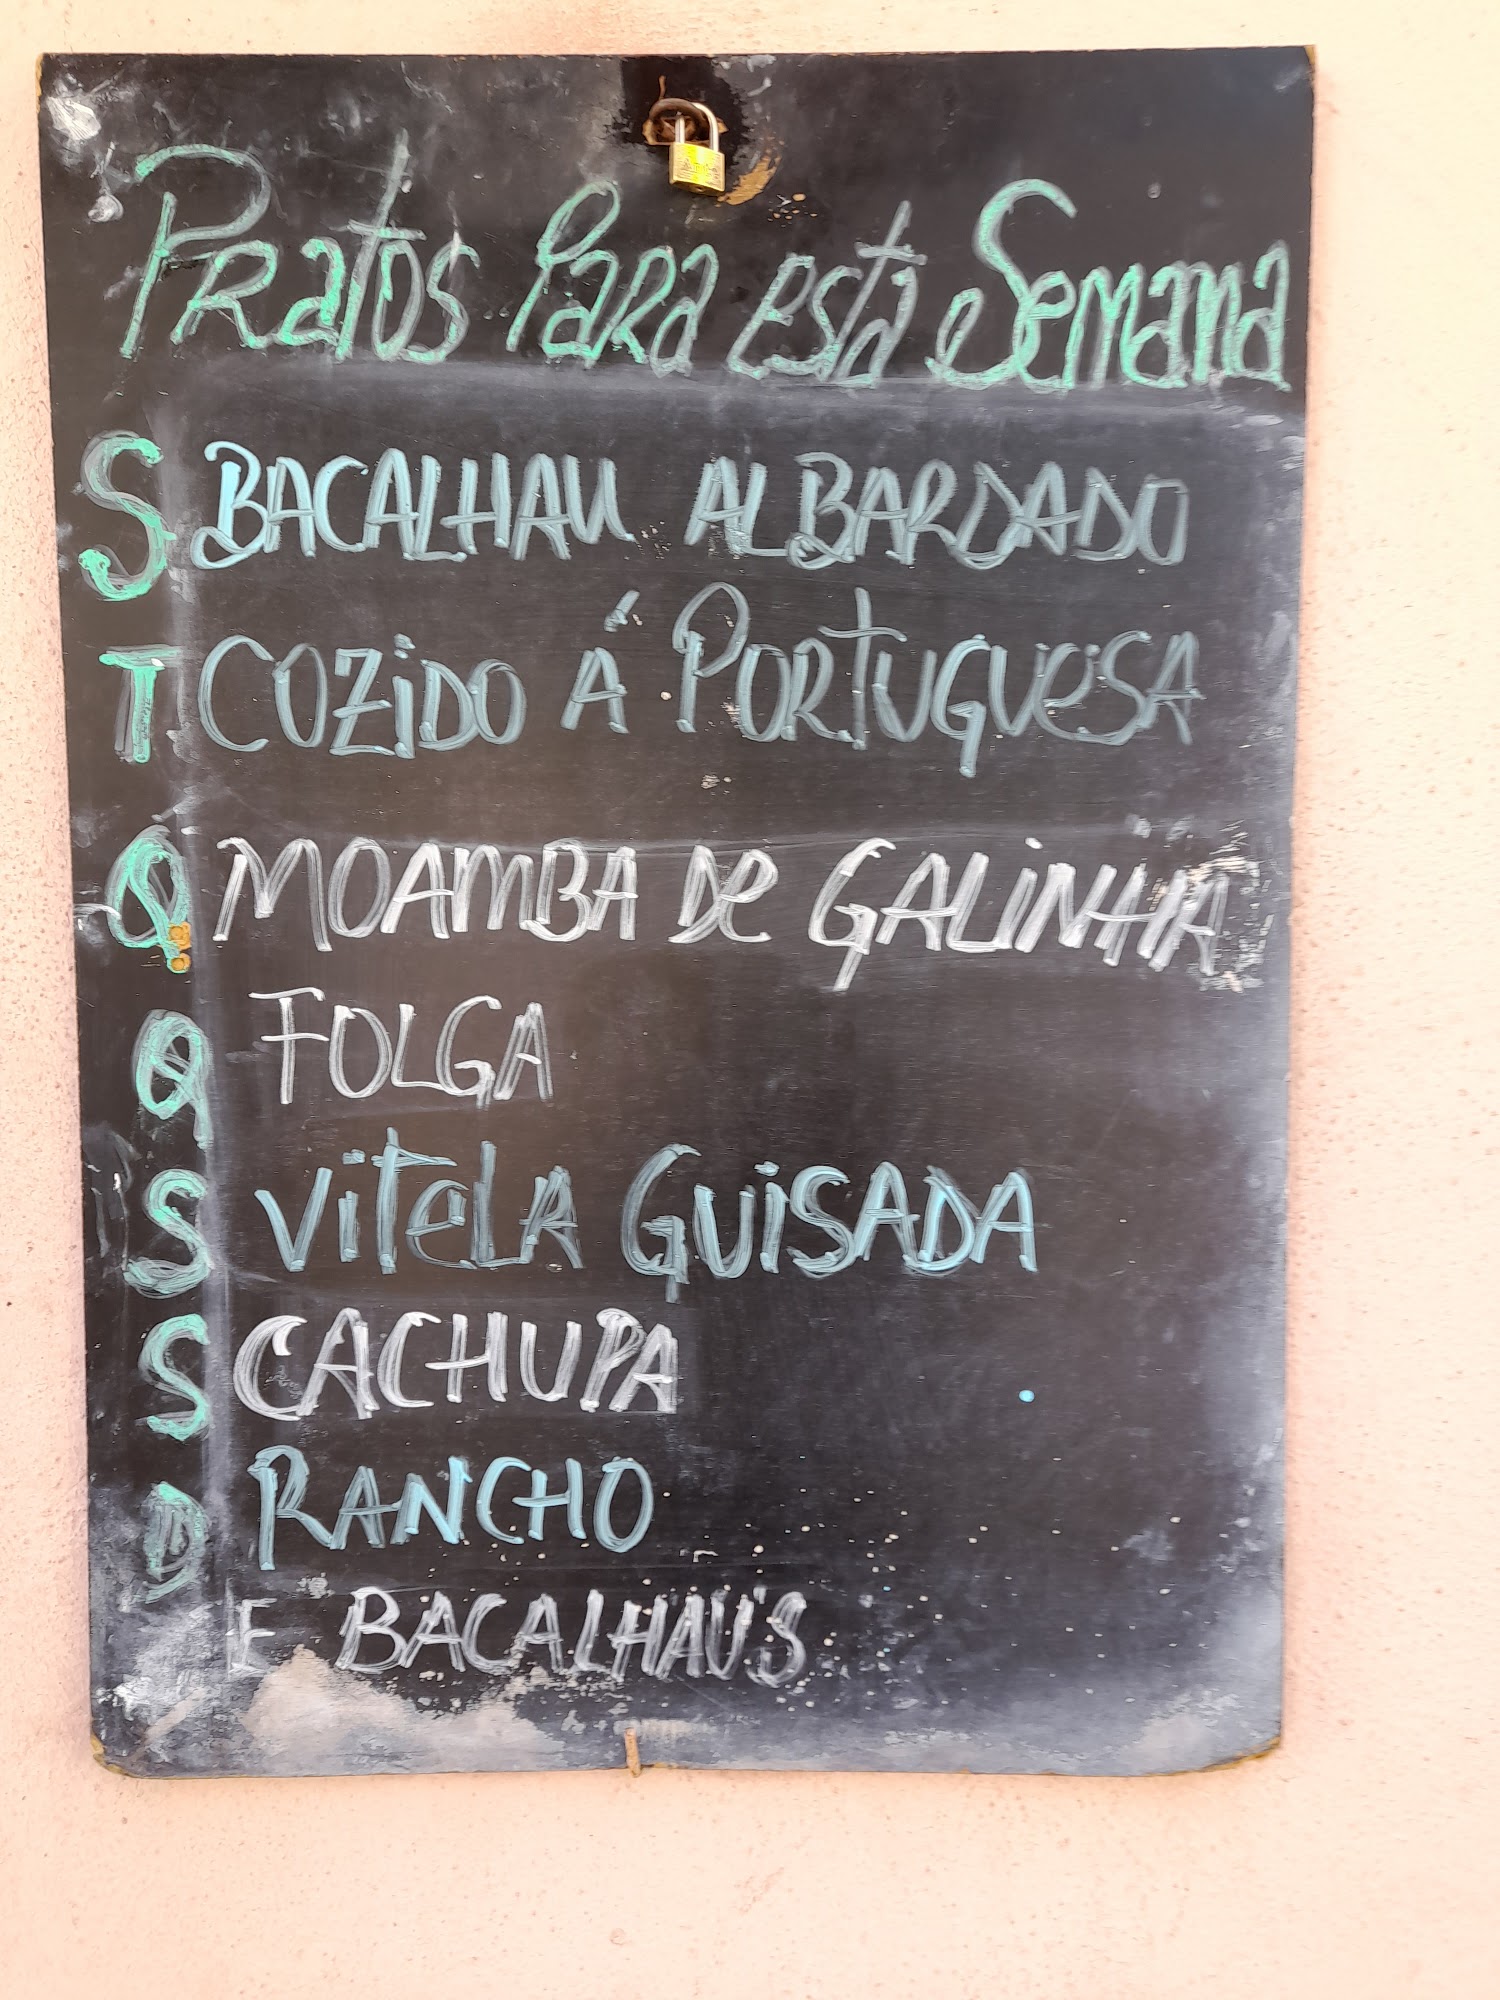 Pratos Para esta Semana
S BACALHAU ALBARDADO
T COZIDO Á PORTUGUESA
Q MOAMBA DE GALINHA
Q FOLGA
S VITELA GUISADA
S CACHUPA
D RANCHO
E BACALHAU'S